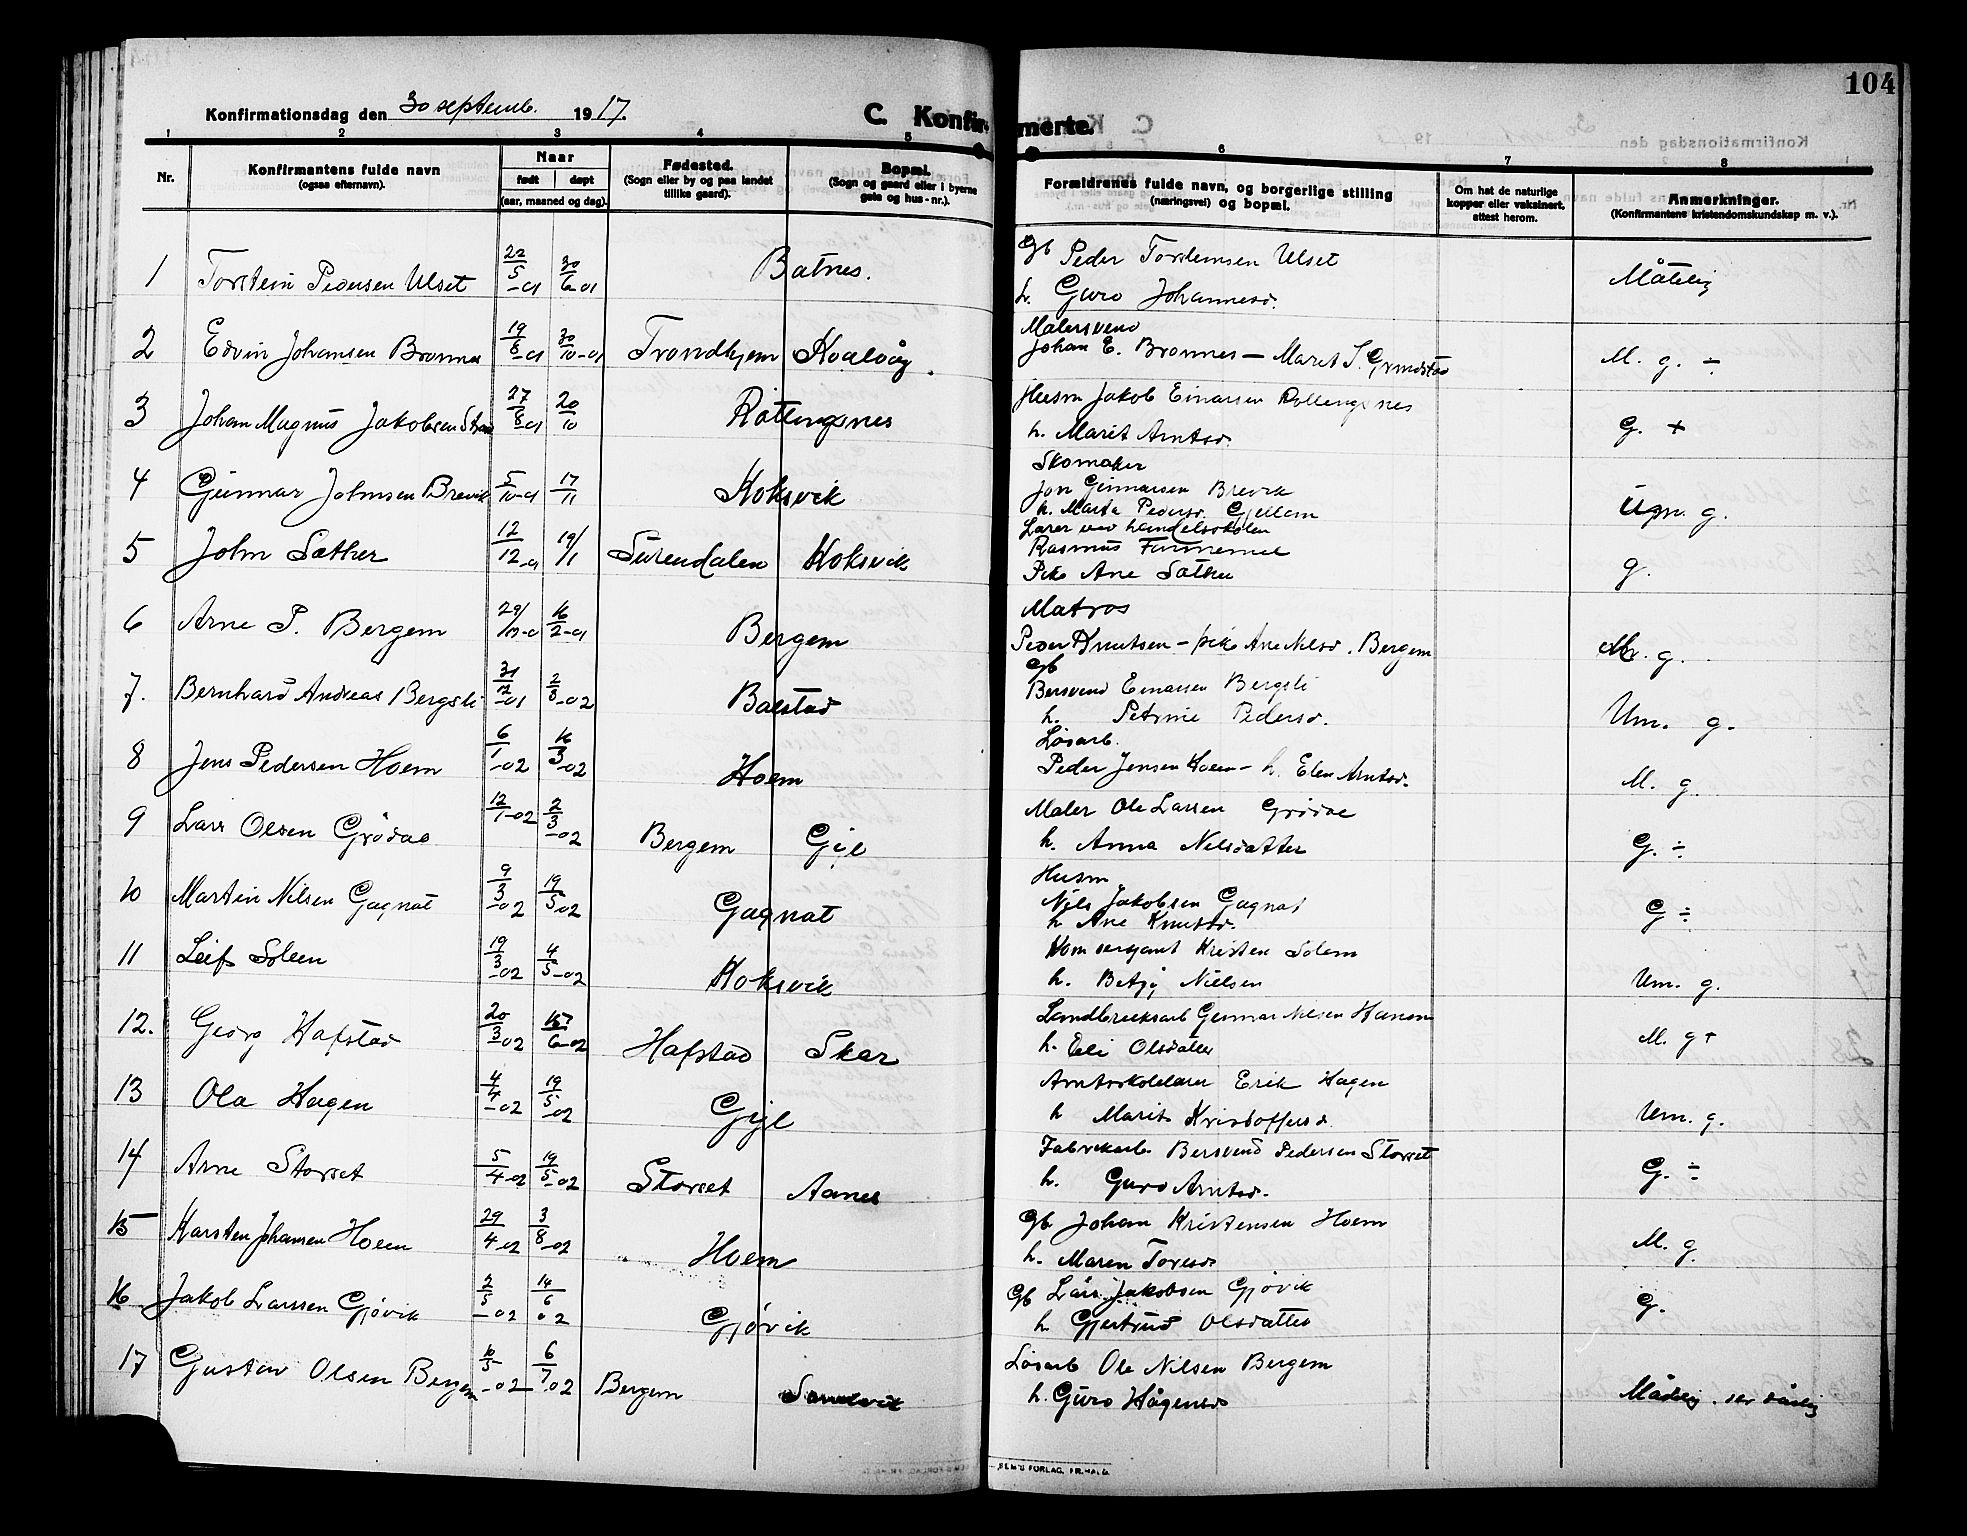 104
Konfirmationsdag den 30 septemb. 1917.
C. Konfirmerte.
1 2 3 4 5 6 7 8
Nr.
Konfirmantens fulde navn
(ogsaa efternavn).
Naar
født døpt
(aar, maaned og dag).
Fødested.
(Sogn eller by og paa landet
tillike gaard).
Bopæl.
(Sogn og gaard eller i byerne
gate og hus-nr.).
Forældrenes fulde navn, og borgerlige stilling
(næringsvei) og bopæl.
Om hat de naturlige
kopper eller vaksinert,
attest herom.
Anmerkninger.
(Konfirmantens kristendomskundskap m. v.).
1 Torstein Pedersen Ulset 22/5-01 30/6-01 Batnes. Gb Peder Torsteinsen Ulset
h. Guro Johannesd. Måtelig
2 Edvin Johansen Bronnes 19/8-01 30/10-01 Trondhjem Kvaløåg. Malersvend
Johan E. Bronnes — Marit S. M. g. ÷
3 Johan Magnus Jakobsen 27/8-01 20/10 Rottengsnes Husm Jakob Einarsen Rottengsnes
h. Marit Arntsd. G. +
4 Gunnar Johnsen Brevik 5/10-01 17/11 Koksvik Skomaker
Jon Gunnarsen Brevik
h. Marta Pedersd. Gjellan g.
5 John Sæther 12/12-01 19/1 Surendalen Koksvik Lærer ved handelsskolen
Rasmus
Pike Ane Sæther g.
6 Arne P. Bergem 29/12-01 16/2-01 Bergem Matros
Peder Knutsen — pike Ane Nilsd. Bergem M. g.
7. Bernhard Andreas Bergsli 31/12-01 2/3-02 Balstad Gb
Bersvend Einarsen Bergsli
h. Petrine Pedersd. Um. g.
8 Jens Pedersen Hoem 6/1-02 16/3-02 Hoem Løsarb.
Peder Jensen Hoem — h. Elen Arntsd. M. g.
9 Lars Olsen Grødal 12/1-02 2/3-02 Bergem Gyl Maler Ole Larsen Grødal
h. Anna Nilsdatter G. ÷
10 Martin Nilsen Gagnat 9/3-02 19/5-02 Gagnat Husm
Nils Jakobsen Gagnat
h Ane Knutsd. G ÷
11 Leif Solem 19/3-02 4/5-02 Koksvik Kom sergant Kristen Solem
h. Betzy Nielsen Um. g.
12. Georg Hafstad 20/3-02 6-02 Hafstad Skar Landbruksarb Gunnar Nilsen
h. Eli Olsdatter M. g +
13 Ola Hagen 4/4-02 19/5-02 Gyl Amtsskolelærer Erik Hagen
h Marit Kristoffersd. Um. g.
14 Arne Storset 5/4-02 19/5-02 Storset Aanes Fabrikarb. Bersvend Pedersen Storset
h. Guro Arntsd. G. ÷
15 Karsten Johansen Hoem 29/4-02 3/8-02 Hoem Gb Johan Kristensen Hoem
h. Maren Toresd. M. g.
16 Jakob Larssen Gjøvik 2/5-02 14/6 02 Gjøvik Gb Lars Jakobsen Gjøvik
h. Gjertrud Olsdatter G.
17 Gustav Olsen Bergem 10/5-02 6/7 02 Bergem Sandvik Løsarb Ole Nilsen Bergem
h. Guro Hågensd. Mådelig, ser dårlig